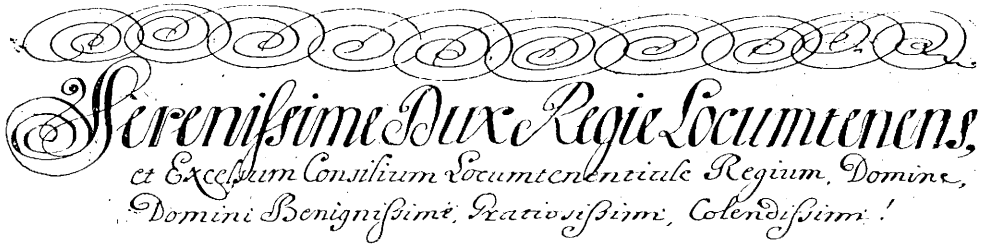 Serenissime Dux Regie Locumtenens,
et Excelsum Consilium Locumtenentiale Regium, Domine,
Domini Benignissime, Gratiosissimi, Colendissimi!